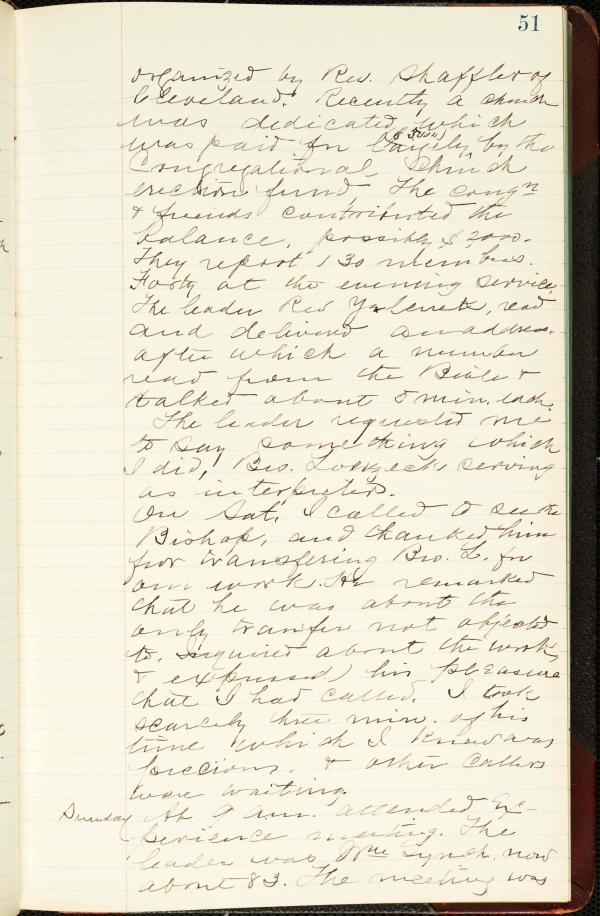 51
organized by Rev. Shaffler of
Cleveland. Recently a church
was dedicated, which
was paid for largely by the
Congregational Church
erection fund, The congn
& friends contributed the
balance, possibly $2000.
They report 130 members.
Forty at the evening service.
The leader Rev read
and delivered an address.
after which a number
read from the Bible &
talked about 5 min. each
The leader requested me
to say something which
I did, Bro. serving
as interpreter.
On Sat, I called to see the
Bishop, and thanked him
for transfering Bro. L. for
our work. He remarked
that he was about the
only transfer not objected
to. Inquired about the work,
& expressed his pleasure
that I had called. I took
scarcely three min. of his
time which I knew was
precious. & other callers
were waiting.
Sunday At 9 am. attended Ex-
perience meeting. The
leader was Wm Lynch, now
about 83. The meeting was